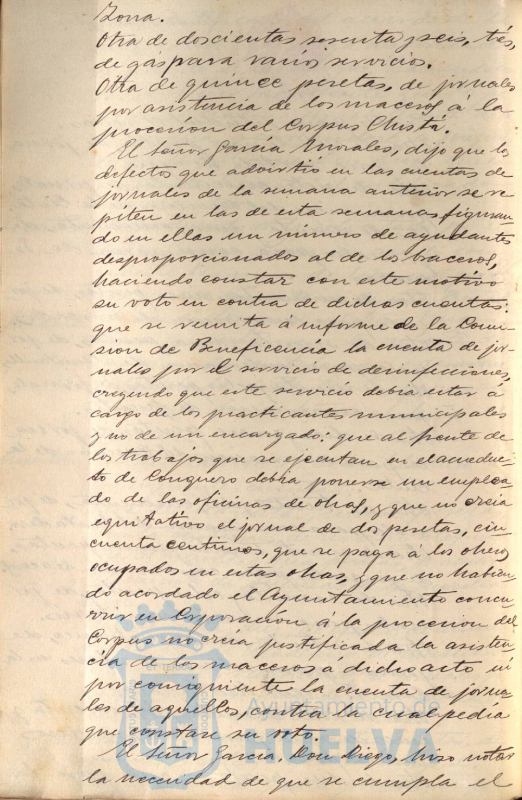 Zona.
Otra de doscientas sesenta y seis, tés,
de gas para varios servicios.
Otra de quince pesetas, de jornales
por asistencia de los maceros á la
procesion del Corpus Christi.
El Señor García Morales, dijo que los
defectos que advirtió en las cuentas de
jornales de la semana anterior se re
piten en las de esta semana figuran
do en ellas un número de ayudantes
desproporcionados al de los braceros,
haciendo constar con este motivo
su voto en contra de dichas cuentas:
que se remita á informe de la Comi
sion de Beneficencia la cuenta de jor
nales por el servicio de desinfecciones,
creyendo que este servicio debia estar á
cargo de los practicantes municipales
y no de un encargado: que al frente de
los trabajos que se ejecutan en el acueduc
to de Conquero debia ponerse un emplea
do de las oficinas de obras, y que no creia
equitativo el jornal de dos pesetas, cin
cuenta centimos, que se paga á los obreros
ocupados en estas obras, y que no habien
do acordado el Ayuntamiento concu
rrir en Corporación á la procesion del
Corpus no creia justificada la asisten
cia de los maceros á dicho acto ni
por consiguiente la cuenta de jorna
les de aquellos, contra la cual pedia
que constase su voto.
El Señor García, Don Diego, hizo notar
la necesidad de que se cumpla el
Ayuntamiento de
HUELVA